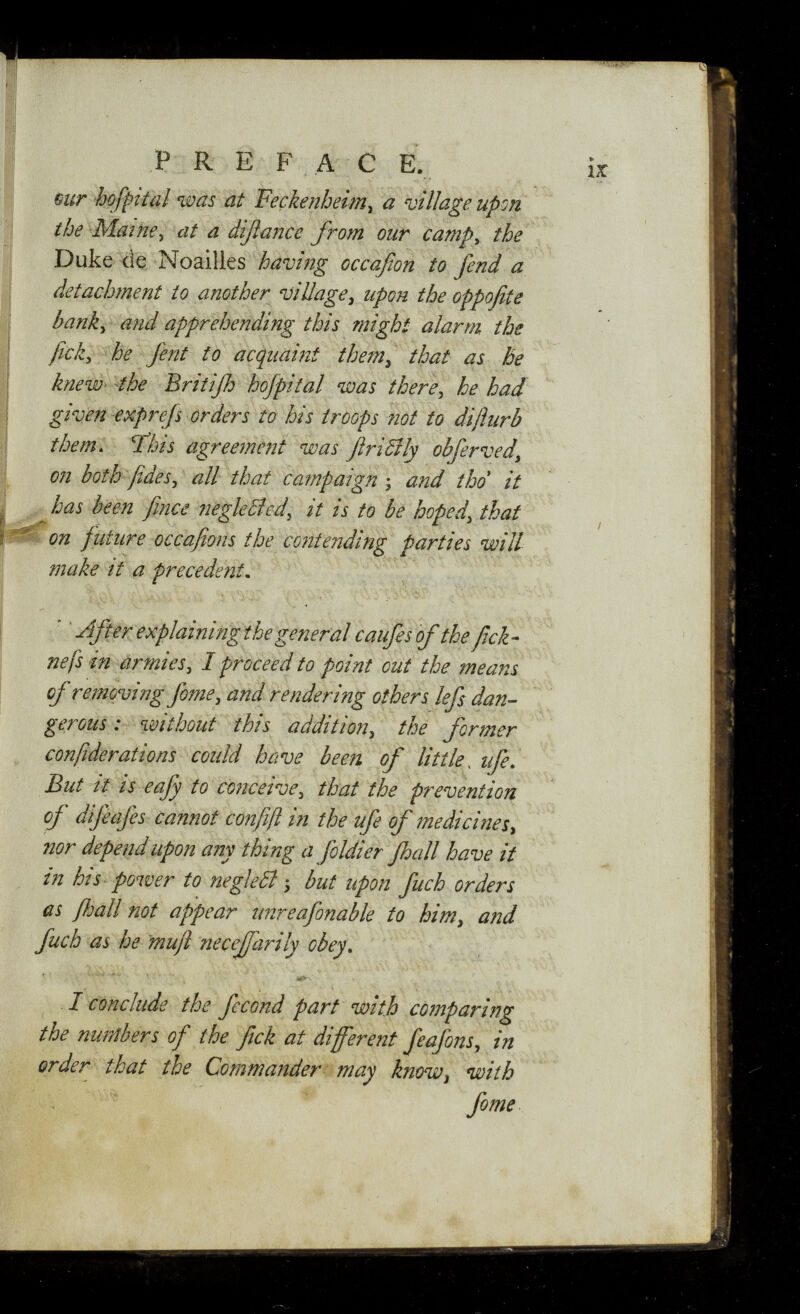 PREFACE. ix
our hoſpital was at Feckenheim, a village upon
the Maine, at a diſtance from our camp, the
Duke de Noailles having occaſion to ſend a
detachment to another village, upon the oppoſite
bank, and apprehending this might alarm the
ſick, he ſent to acquaint them, that as he
knew the Britiſh hoſpital was there, he had
given expreſs orders to his troops not to diſturb
them. This agreement was ſtrictly obſerved,
on both ſides, all that campaign; and tho' it
has been ſince neglected, it is to be hoped, that
on future occaſions the contending parties will
make it a precedent.
After explaining the general cauſes of the ſick-
neſs in armies, I proceed to point out the means
of removing ſome, and rendering others leſs dan-
gerous: without this addition, the former
conſiderations could have been of little uſe.
But it is eaſy to conceive, that the prevention
of diſeaſes cannot conſiſt in the uſe of medicines,
nor depend upon any thing a ſoldier ſhall have it
in his power to neglect; but upon ſuch orders
as ſhall not appear unreaſonable to him, and
ſuch as he muſt neceſſarily obey.
I conclude the ſecond part with comparing
the numbers of the ſick at different ſeaſons, in
order that the Commander may know, with
ſome